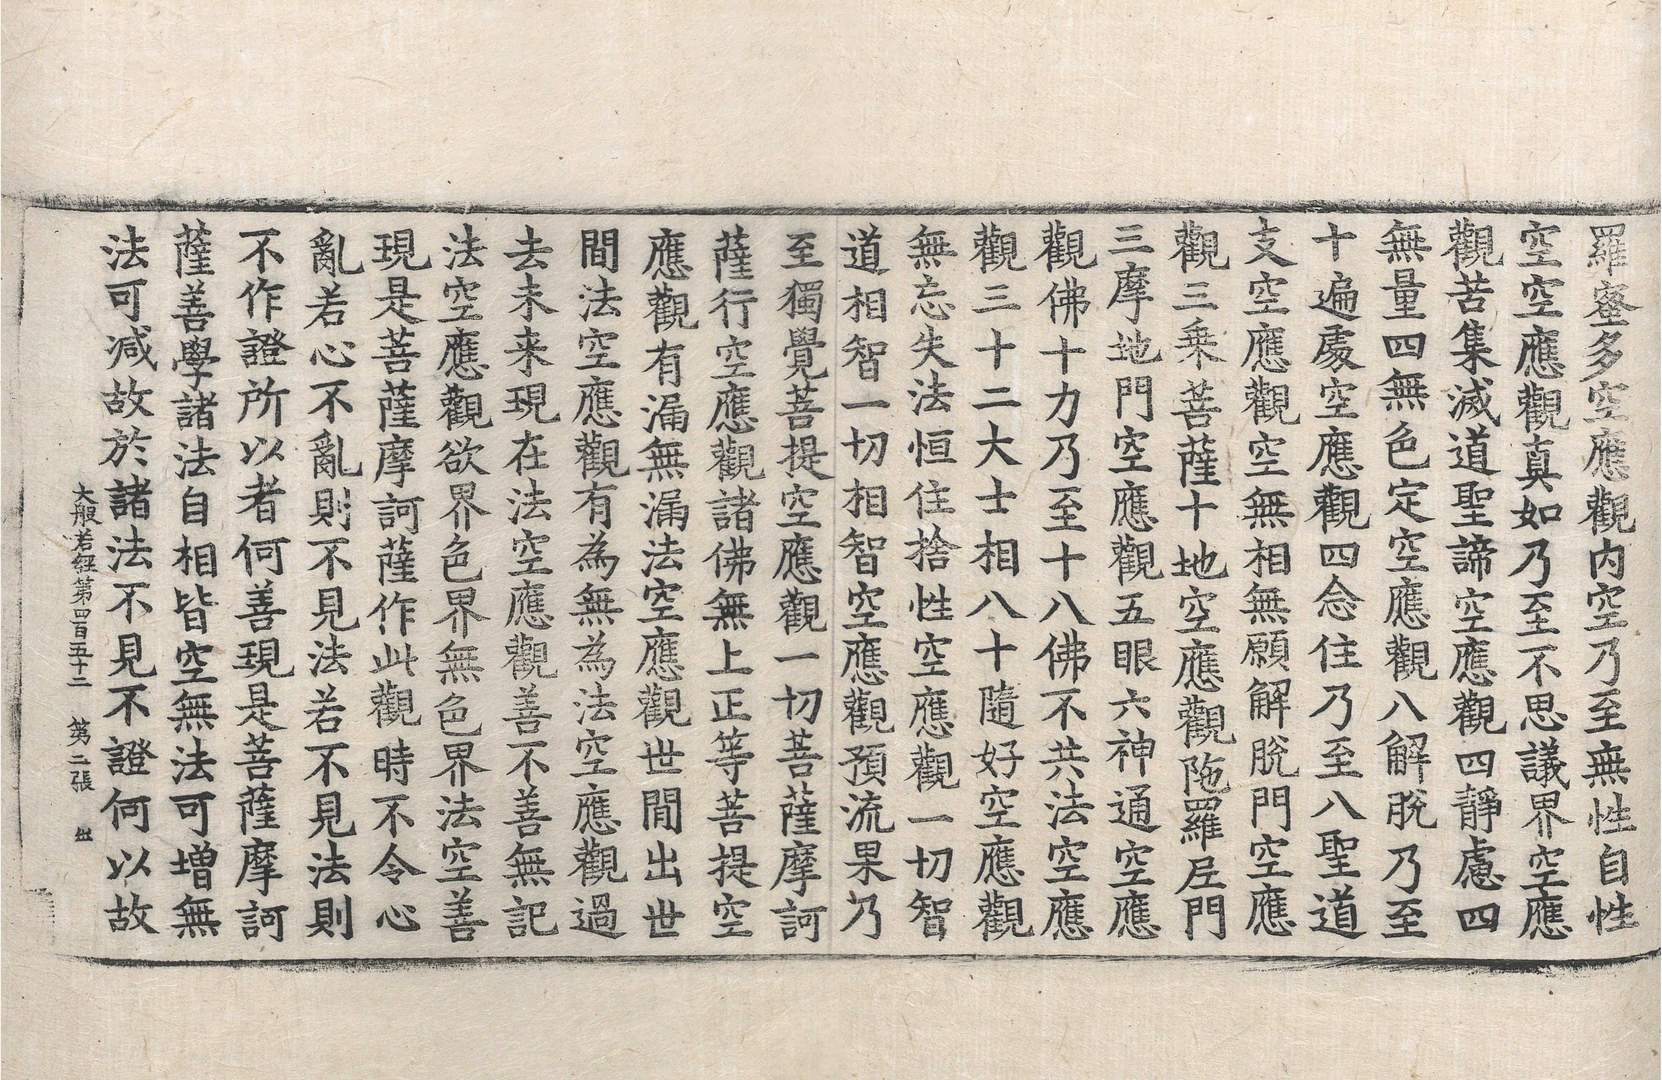 羅蜜多空應觀内空乃至無性自性
空空應觀真如乃至不思議界空應
觀苦集滅道聖諦空應觀四靜慮四
無量四無色定空應觀八解脫乃至
十遍處空應觀四念住乃至八聖道
支空應觀空無相無願解脫門空應
觀三乘菩薩十地空應觀陁羅𡰱門
三摩地門空應觀五眼六神通空應
觀佛十力乃至十八佛不共法空應
觀三十二大士相八十隨好空應觀
無忘失法恒住捨性空應觀一切智
道相智一切相智空應觀預流果乃
至獨覺菩提空應觀一切菩薩摩訶
薩行空應觀諸佛無上正等菩提空
應觀有漏無漏法空應觀世間出世
間法空應觀有為無為法空應觀過
去未来現在法空應觀善不善無記
法空應觀欲界色界無色界法空善
現是菩薩摩訶薩作此觀時不令心
亂若心不亂則不見法若不見法則
不作證所以者何善現是菩薩摩訶
薩善學諸法自相皆空無法可增無
法可減故於諸法不見不證何以故
大般若経第四百五十二 第二張